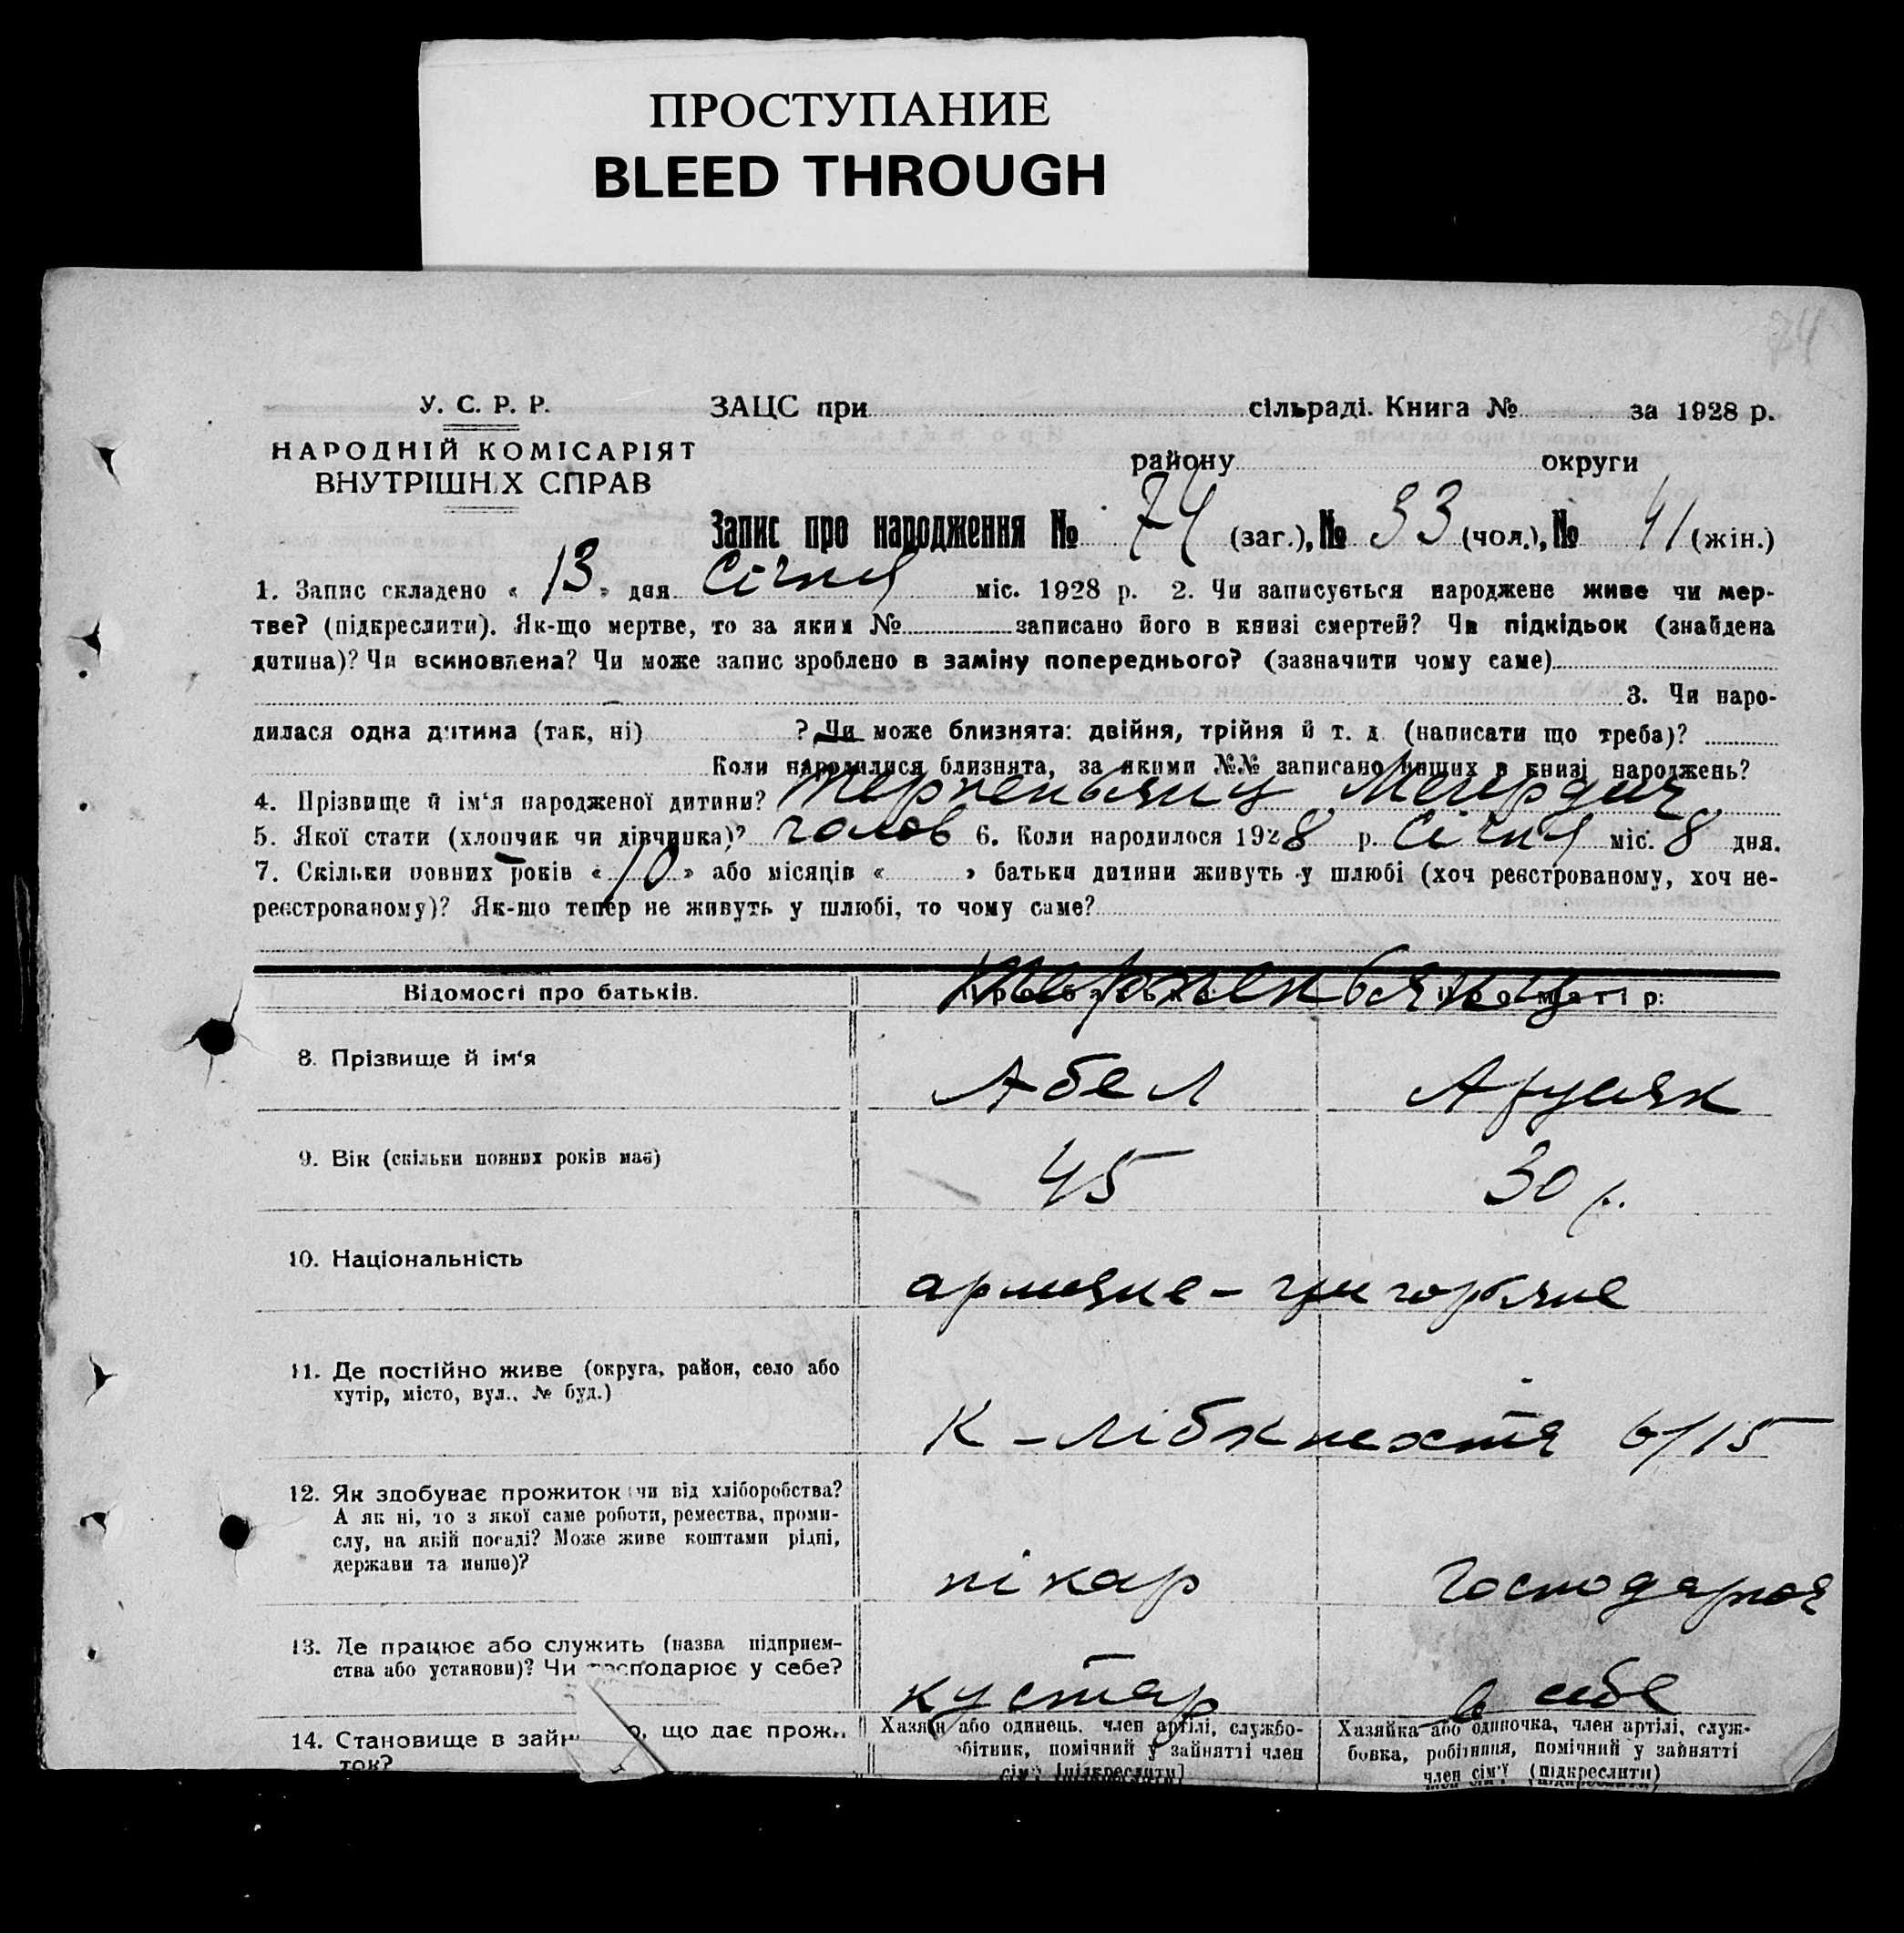 ПРОСТУПАНИЕ
BLEED THROUGH
74
У. С. Р. Р.
НАРОДНІЙ КОМІСАРІЯТ
ВНУТРІШНІХ СПРАВ
ЗАЦС при сільраді. Книга № за 1928 р.
району округи
Запис про народження № 74 (заг.), № 33 (чол.), № 41 (жін.)
1. Запис складено « 13 » дня Січня міс. 1928 р. 2. Чи записується народжене живе чи мер-
тве? (підкреслити). Як-що мертве, то за яким № записано його в книзі смертей? Чи підкідьок (знайдена
дитина)? Чи всиновлена? Чи може запис зроблено в заміну попереднього? (зазначити чому саме)
3. Чи наро-
дилася одна дитина (так, ні) ? Чи може близнята: двійня, трійня й т. д. (написати що треба)?
Коли народилися близнята, за якими №№ записано инших в книзі народжень?
4. Прізвище й ім'я народженої дитини?
5. Якої стати (хлопчик чи дівчинка)? чолов 6. Коли народилося 1928 р. Січня міс. 8 дня.
7. Скільки повних років « 10 » або місяців « » батьки дитини живуть у шлюбі (хоч реєстрованому, хоч не-
реєстрованому)? Як-що тепер не живуть у шлюбі, то чому саме?
Відомості про батьків. Про батька: Про матір:
8. Прізвище й ім'я Абел Арусяк
9. Вік (скільки повних років має) 45 30 р.
10. Національність армяне - григоряне
11. Де постійно живе (округа, район, село або
хутір, місто, вул., № буд.)
К - Лібкнехтя 6/15
12. Як здобуває прожиток (чи від хліборобства?
А як ні, то з якої саме роботи, ремества, проми-
слу, на якій посаді? Може живе коштами рідні,
держави та инше)?
пікар Господарка
13. Де працює або служить (назва підприєм-
ства або установи)? Чи господарює у себе?
кустар в себе
14. Становище в що дає прожи
ток?
Хазяїн або одинець, член артілі, службо-
бітник, помічний у зайнятті член
сім'ї [підкреслити]
Хазяйка або одиночка, член артілі, служ-
бовка, робітниця, помічний у зайнятті
член сім'ї (підкреслити)